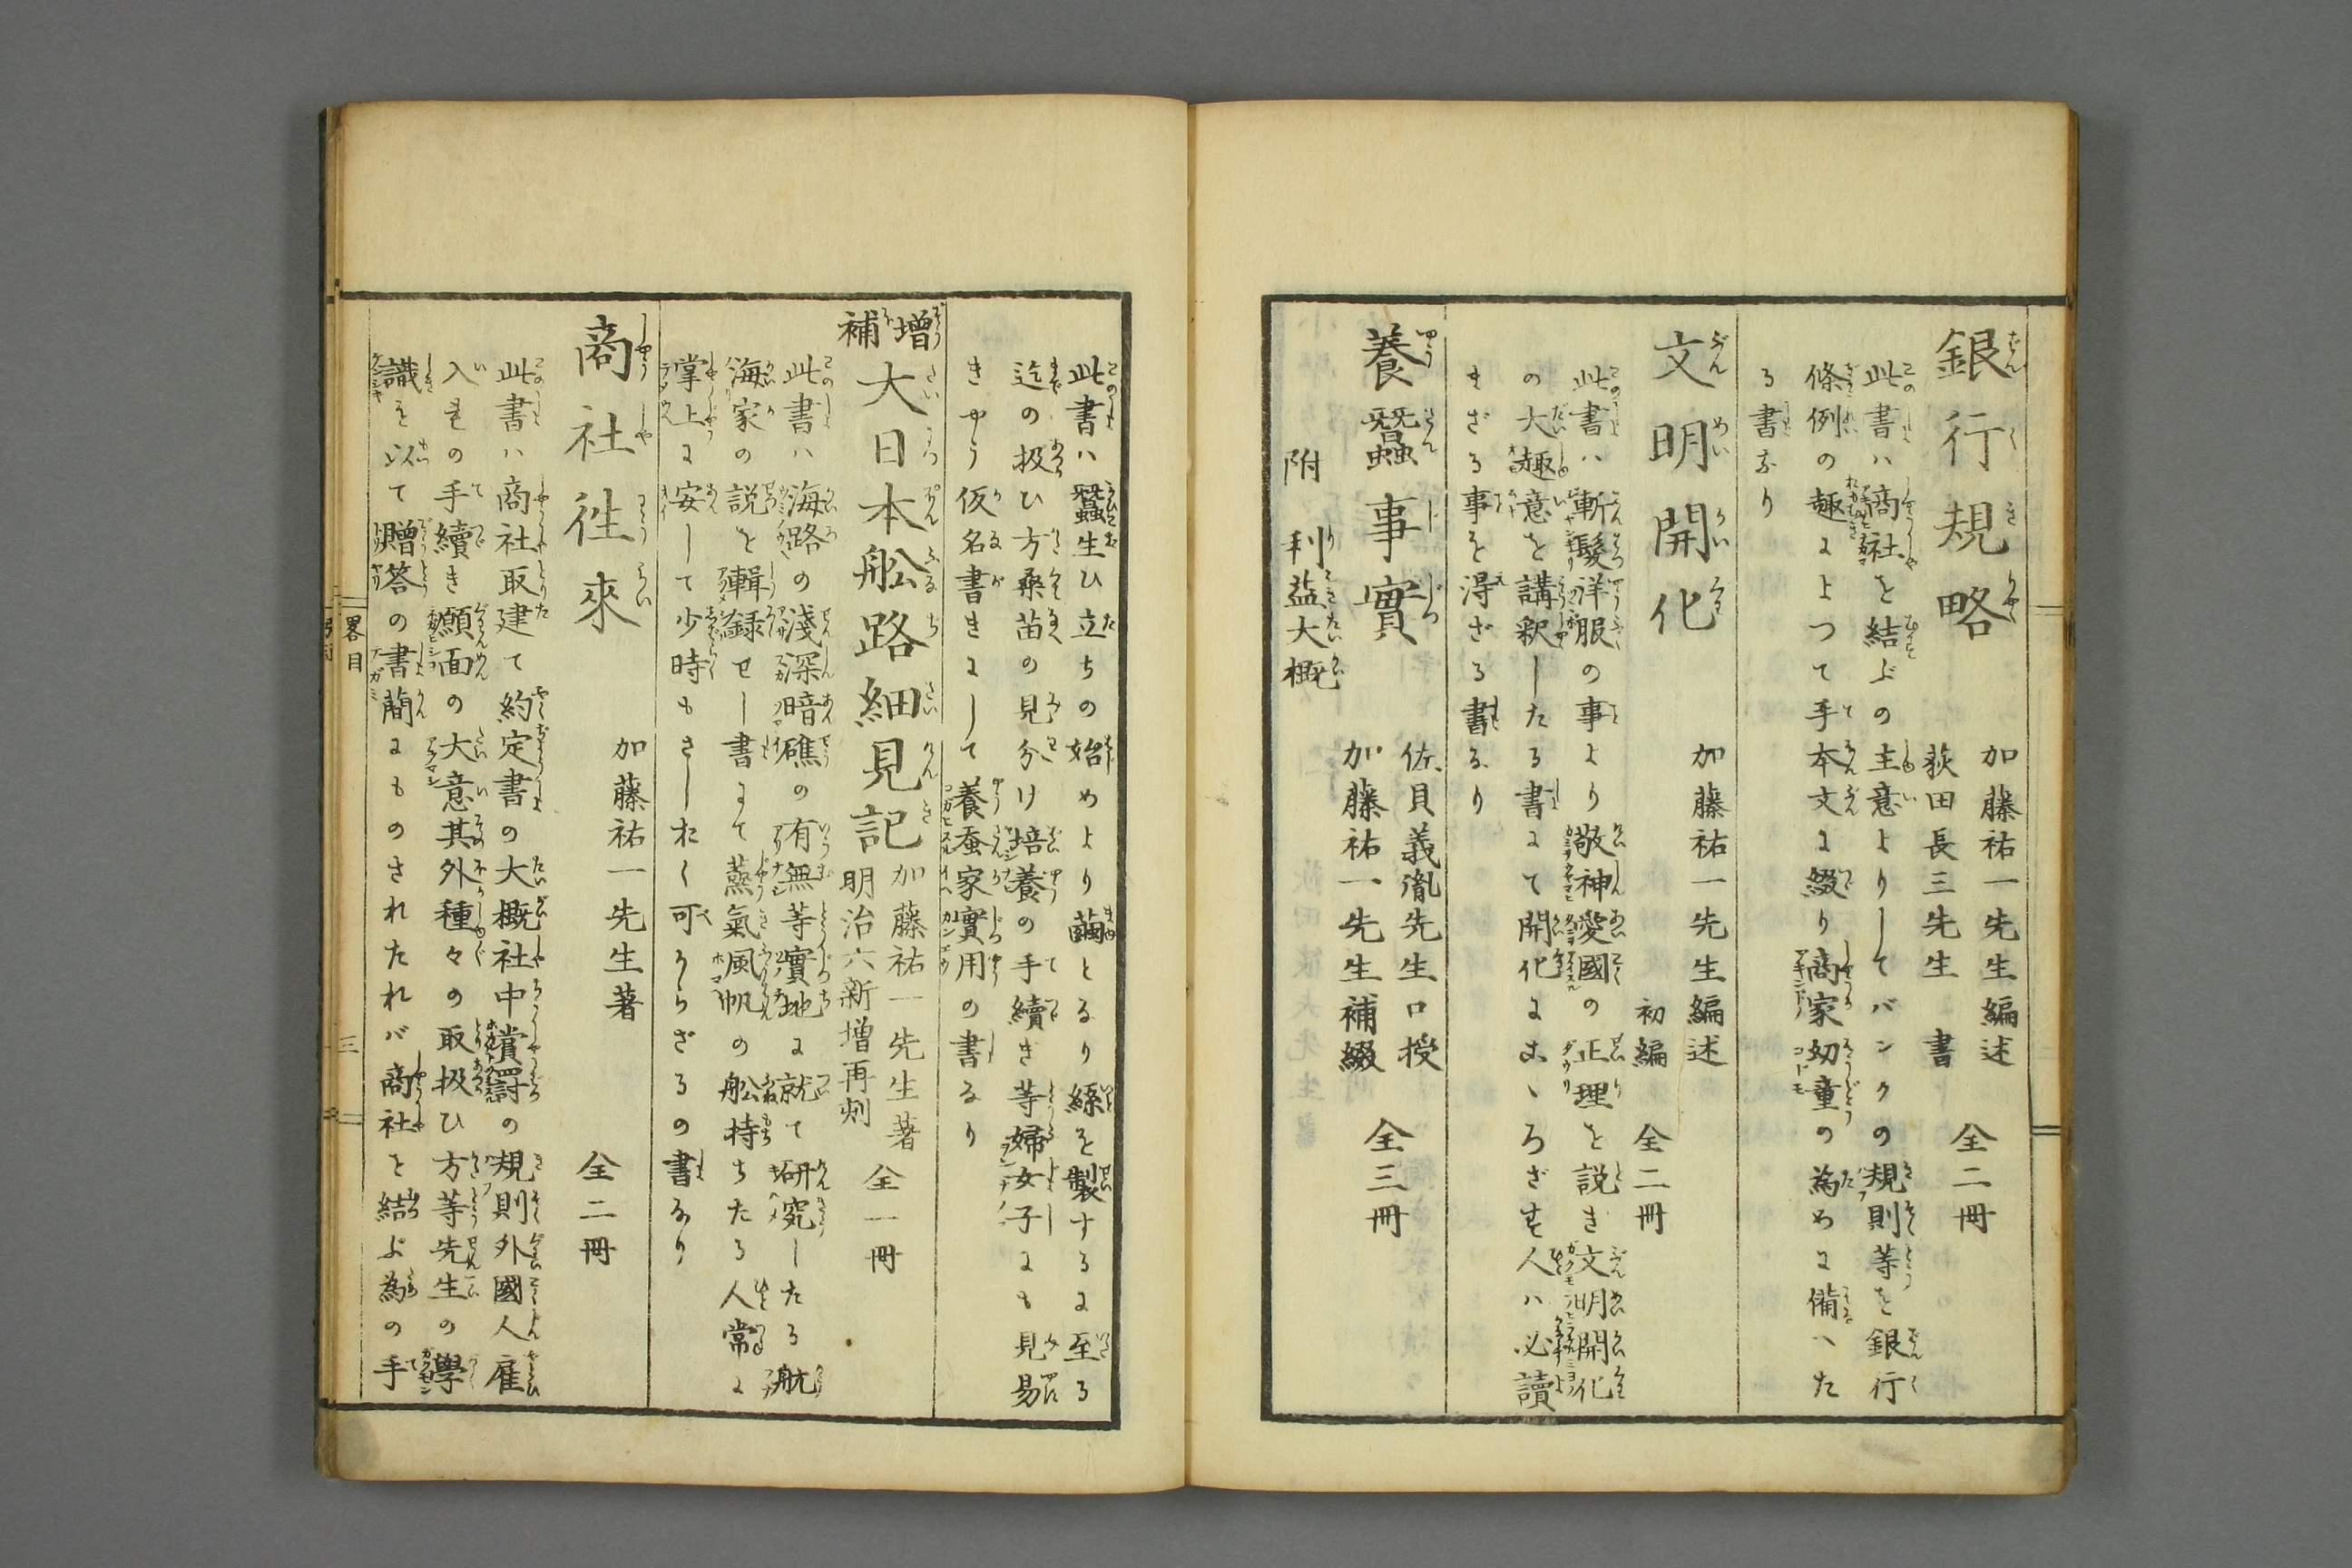 銀行規略
加藤祐一先生編述
荻田長三先生書
全二冊
此書ハ商社を結ぶの主意よりしてバンクの規則等を銀行
條例の趣によつて手本文に綴り商家幼童の為めに備へた
る書なり
文明開化
加藤祐一先生編述
初編
全二冊
此書ハ斬髪洋服の事より敬神愛國の正理を説き文明開化
の大趣意を講釈したる書にて開化にこゝろざす人ハ必讀
せざる事を得ざる書なり
養蠶事實
附利益大概
佐貝義胤先生口授
加藤祐一先生補綴
全三冊
此書ハ蠶生ひ立ちの始めより繭となり絲を製するに至る
迄の扱ひ方桑苗の見分け培養の手續き等婦女子にも見易
きやう仮名書きにして養蚕家實用の書なり
増補
大日本舩路細見記
加藤祐一先生著
明治六新増再刻
全一冊
此書ハ海路の淺深暗礁の有無等實地に就て研究したる航
海家の説を輯録せし書にて蒸氣風帆の舩持ちたる人常に
掌上に安して少時もさしおく可からざるの書なり
商社徃來
加藤祐一先生著
全二冊
此書ハ商社取建て約定書の大概社中賞罸の規則外國人雇
入まの手續き願面の大意其外種々の取扱ひ方等先生の學
識を以て贈答の書簡にものされたれバ商社を結ぶ為の手
畧目
三